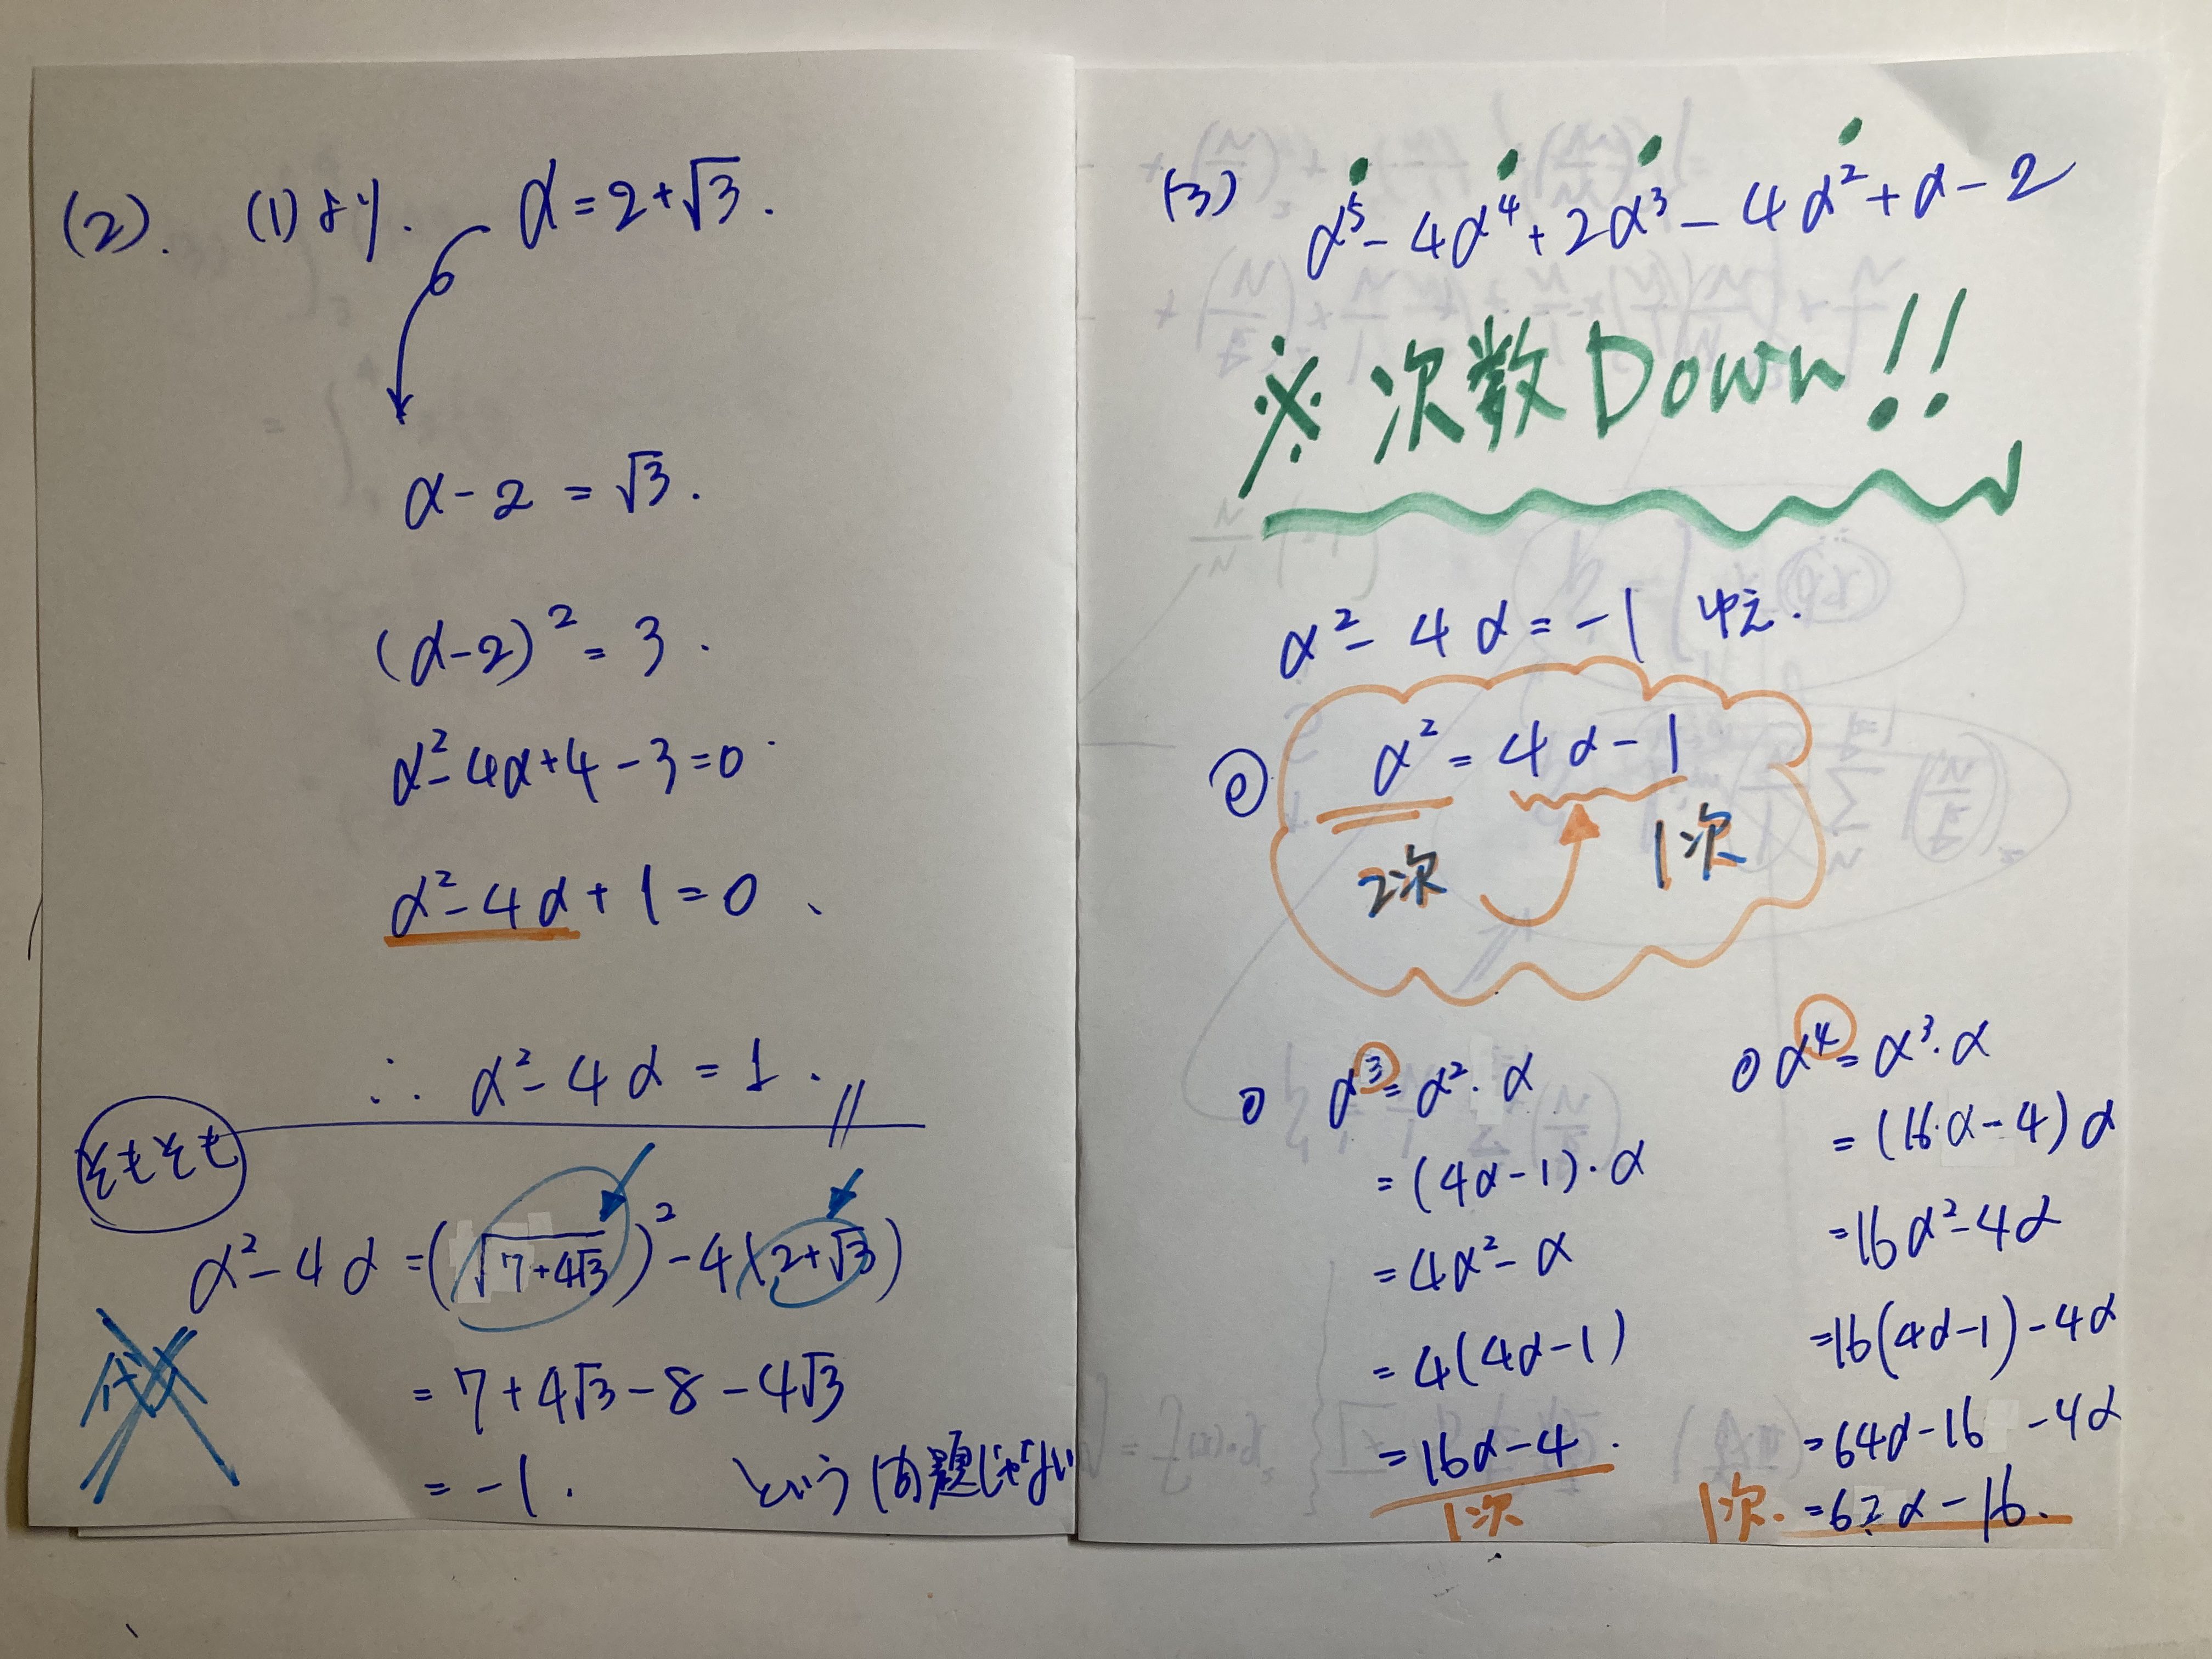 (2). (1)より. α=2+√3.
α-2=√3.
(α-2)²=3.
α²-4α+4-3=0
α²-4α+1=0
∴ α²-4α=1.
そもそも
α²-4α=(√7+4√3)²-4(2+√3)
=7+4√3-8-4√3
=-1. という問題じゃない
(3) α⁵-4α⁴+2α³-4α²+α-2
※次数Down!!
α²-4α=-1 ゆえ.
α²=4α-1
2次 1次
α³=α²·α
=(4α-1)·α
=4α²-α
=4(4α-1)
=16α-4.
1次
α⁴=α³·α
=(16α-4)α
=16α²-4α
=16(4α-1)-4α
=64α-16-4α
1次. =62α-16.